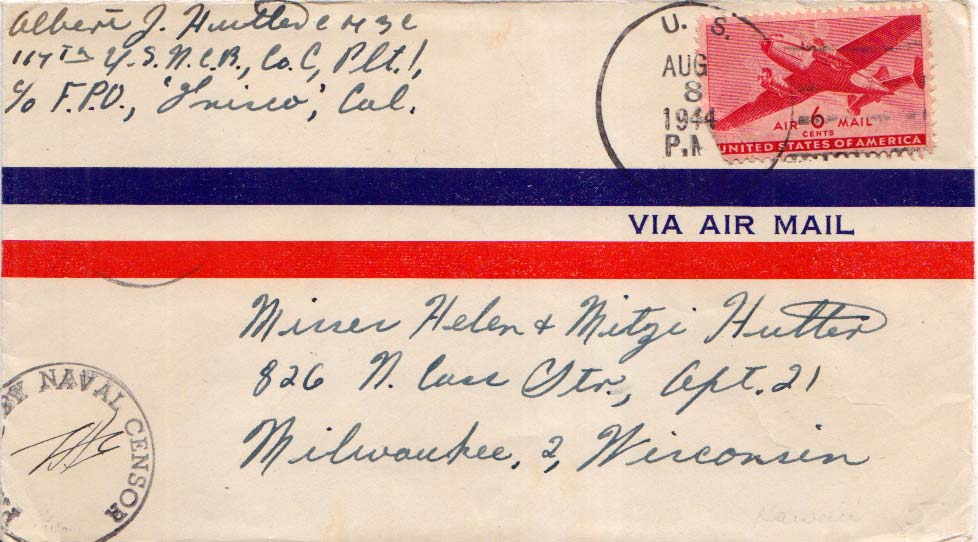 Albert J. Hutter C M 3 C
117TH U.S.N.C.B., Co. C, Plt. 1,
c/o F.P.O., 'Frisco', Cal.
U. S.
AUG
8
1944
P.M
AIR 6 MAIL
CENTS
UNITED STATES OF AMERICA
VIA AIR MAIL
Misses Helen & Mitzi Hutter
826 N. Cass Str., Apt. 21
Milwaukee, 2, Wisconsin
BY NAVAL CENSOR
Hawaii 5